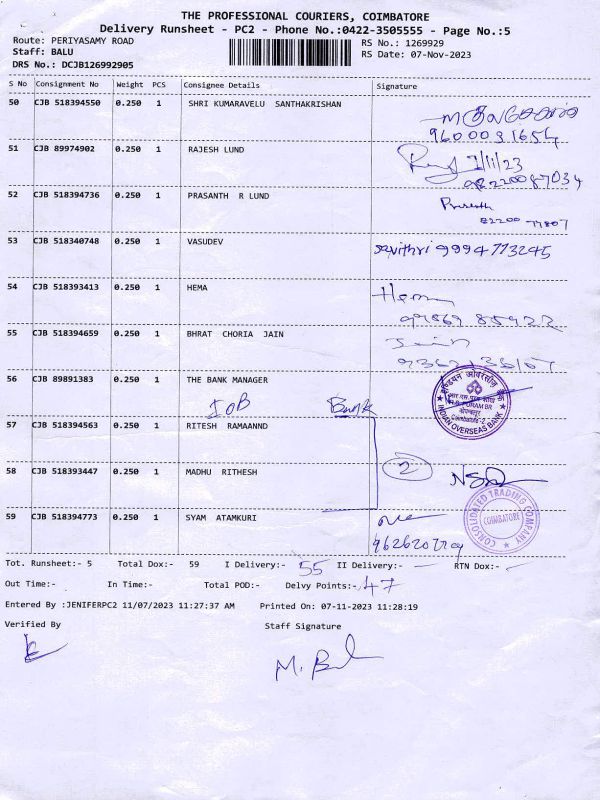 THE PROFESSIONAL COURIERS, COIMBATORE
Delivery Runsheet - PC2 - Phone No.:0422-3505555 - Page No.:5
Route: PERIYASAMY ROAD
RS No.: 1269929
Staff: BALU
RS Date: 07-Nov-2023
DRS No.: DCJB126992905
S No Consignment No Weight PCS Consignee Details Signature
50 CJB 518394550 0.250 1 SHRI KUMARAVELU SANTHAKRISHAN
9600031654
51 CJB 89974902 0.250 1 RAJESH LUND
98220087034
52 CJB 518394736 0.250 1 PRASANTH R LUND Prasanth
82200 77807
53 CJB 518340748 0.250 1 VASUDEV savithri 9994773245
54 CJB 518393413 0.250 1 HEMA Hema
55 CJB 518394659 0.250 1 BHRAT CHORIA JAIN Jain
56 CJB 89891383 0.250 1 THE BANK MANAGER
IOB Bank
इण्डियन ओवरसीज़ बैंक
INDIAN OVERSEAS BANK
Coimbatore-2
57 CJB 518394563 0.250 1 RITESH RAMAANND
58 CJB 518393447 0.250 1 MADHU RITHESH
2
CONSOLIDATED TRADING COMPANY
COIMBATORE
59 CJB 518394773 0.250 1 SYAM ATAMKURI
Tot. Runsheet:- 5 Total Dox:- 59 I Delivery:- 55 II Delivery:- — RTN Dox:- —
Out Time:- In Time:- Total POD:- Delvy Points:- 47
Entered By :JENIFERPC2 11/07/2023 11:27:37 AM Printed On: 07-11-2023 11:28:19
Verified By Staff Signature